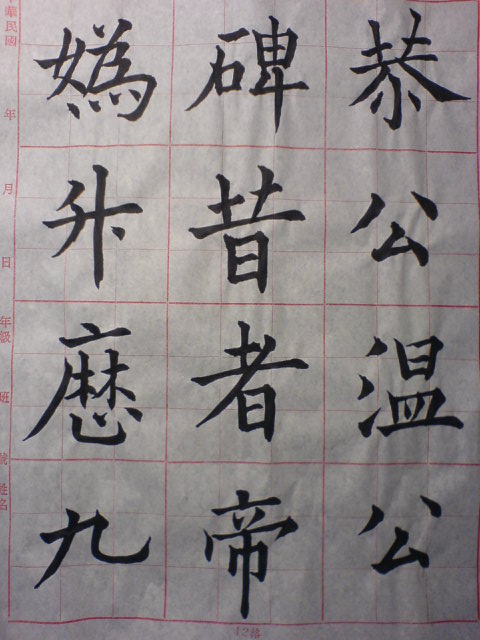 恭公温公
碑昔者帝
媯升歷九
華民國　年　月　日　年級　班　號　姓名
12格